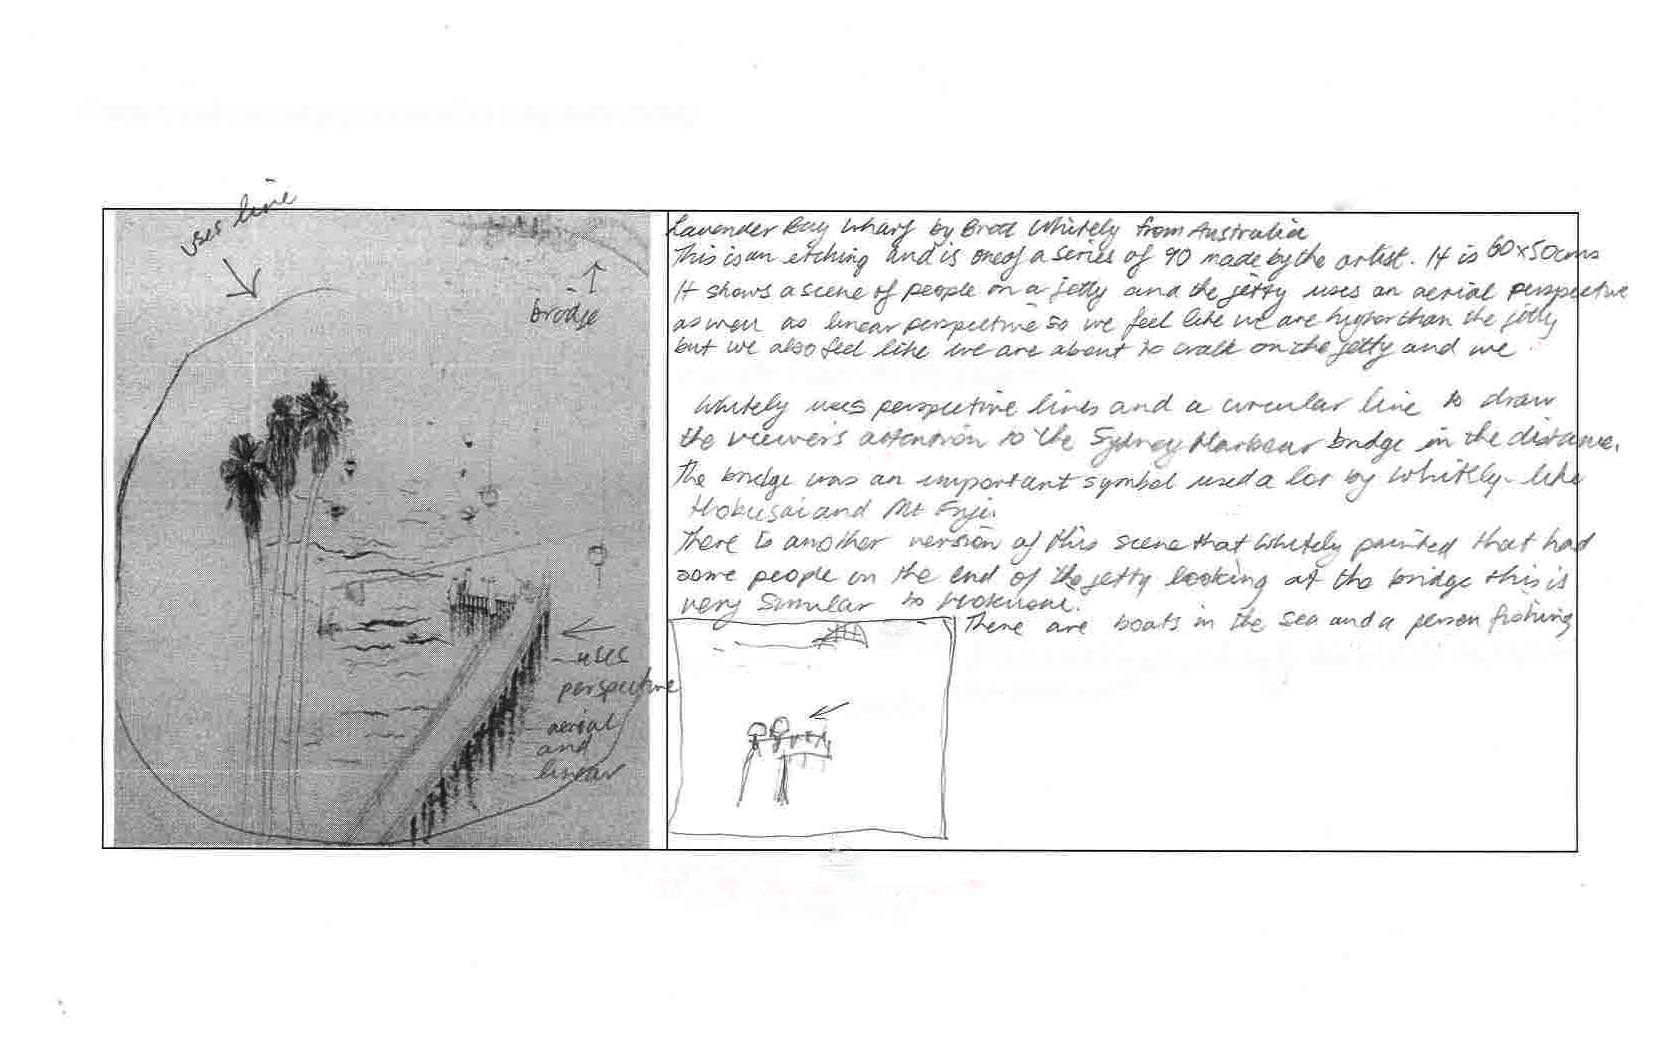 uses line
bridge
uses
perspective
aerial
and
linear
Lavender Bay Wharf by Brett Whitely from Australia
This is an etching and is one of a series of 90 made by the artist. It is 60x50cms
It shows a scene of people on a jetty and the jetty uses an aerial perspective
as well as linear perspective so we feel like we are higher than the jetty
but we also feel like we are about to walk on the jetty and we
Whitely uses perspective lines and a circular line to draw
the viewers attention to the Sydney Harbour bridge in the distance.
The bridge was an important symbol used a lot by Whitely - like
Hokusai and Mt Fuji.
There is another version of this scene that Whitely painted that had
some people on the end of the jetty looking at the bridge this is
very similar to
There are boats in the sea and a person fishing